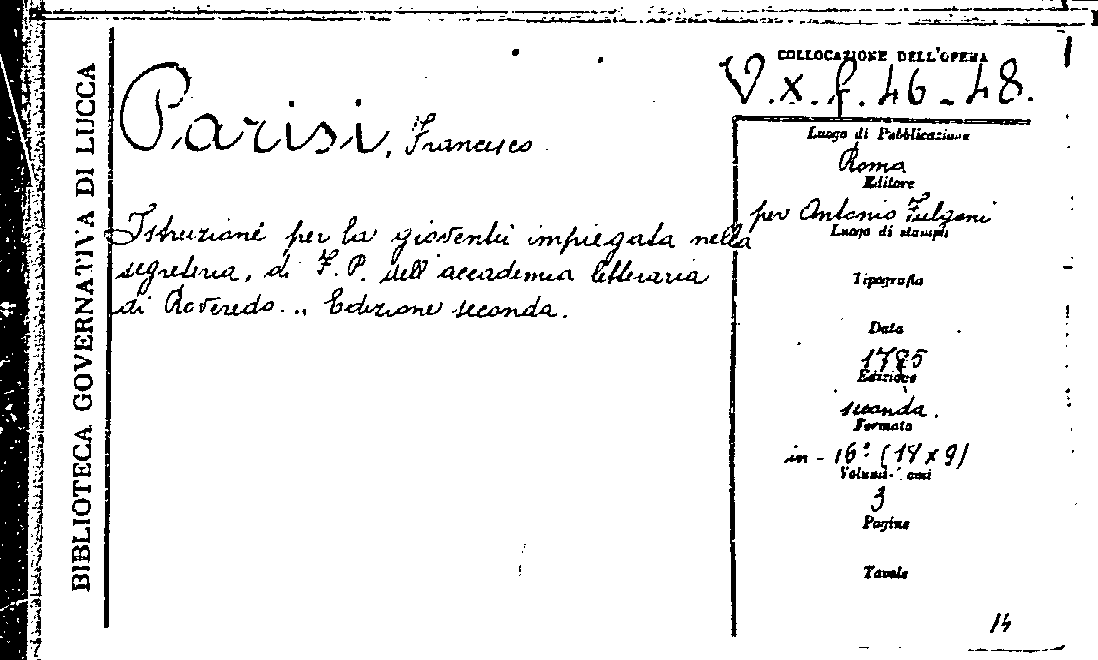 BIBLIOTECA GOVERNATIVA DI LUCCA
COLLOCAZIONE DELL'OPERA
V.x.f.46-48.
Parisi, Francesco
Istruzioni per la gioventù impiegata nella
segreteria, di F. P. dell'accademia letteraria
di Roveredo... Edizione seconda.
Luogo di Pubblicazione
Roma
Editore
per Antonio Fulgoni
Luogo di stampa
Tipografia
Data
1785
Edizione
seconda.
Formato
in-16° (17x9)
Volumi-Tomi
3
Pagine
Tavole
14